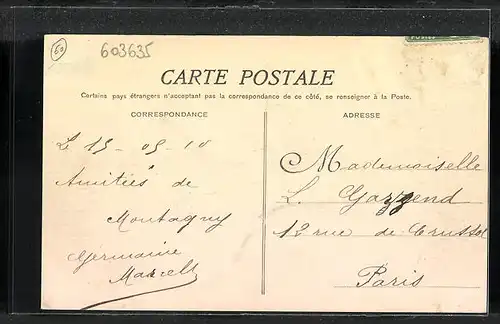 60
603635
CARTE POSTALE
Certains pays étrangers n'acceptant pas la correspondance de ce côté, se renseigner à la Poste.
CORRESPONDANCE
ADRESSE
Le 15-09-10
Amitiés de
Montagny
Germaine
Marcell
Mademoiselle
L. Gazzend
12 rue de Crussol
Paris